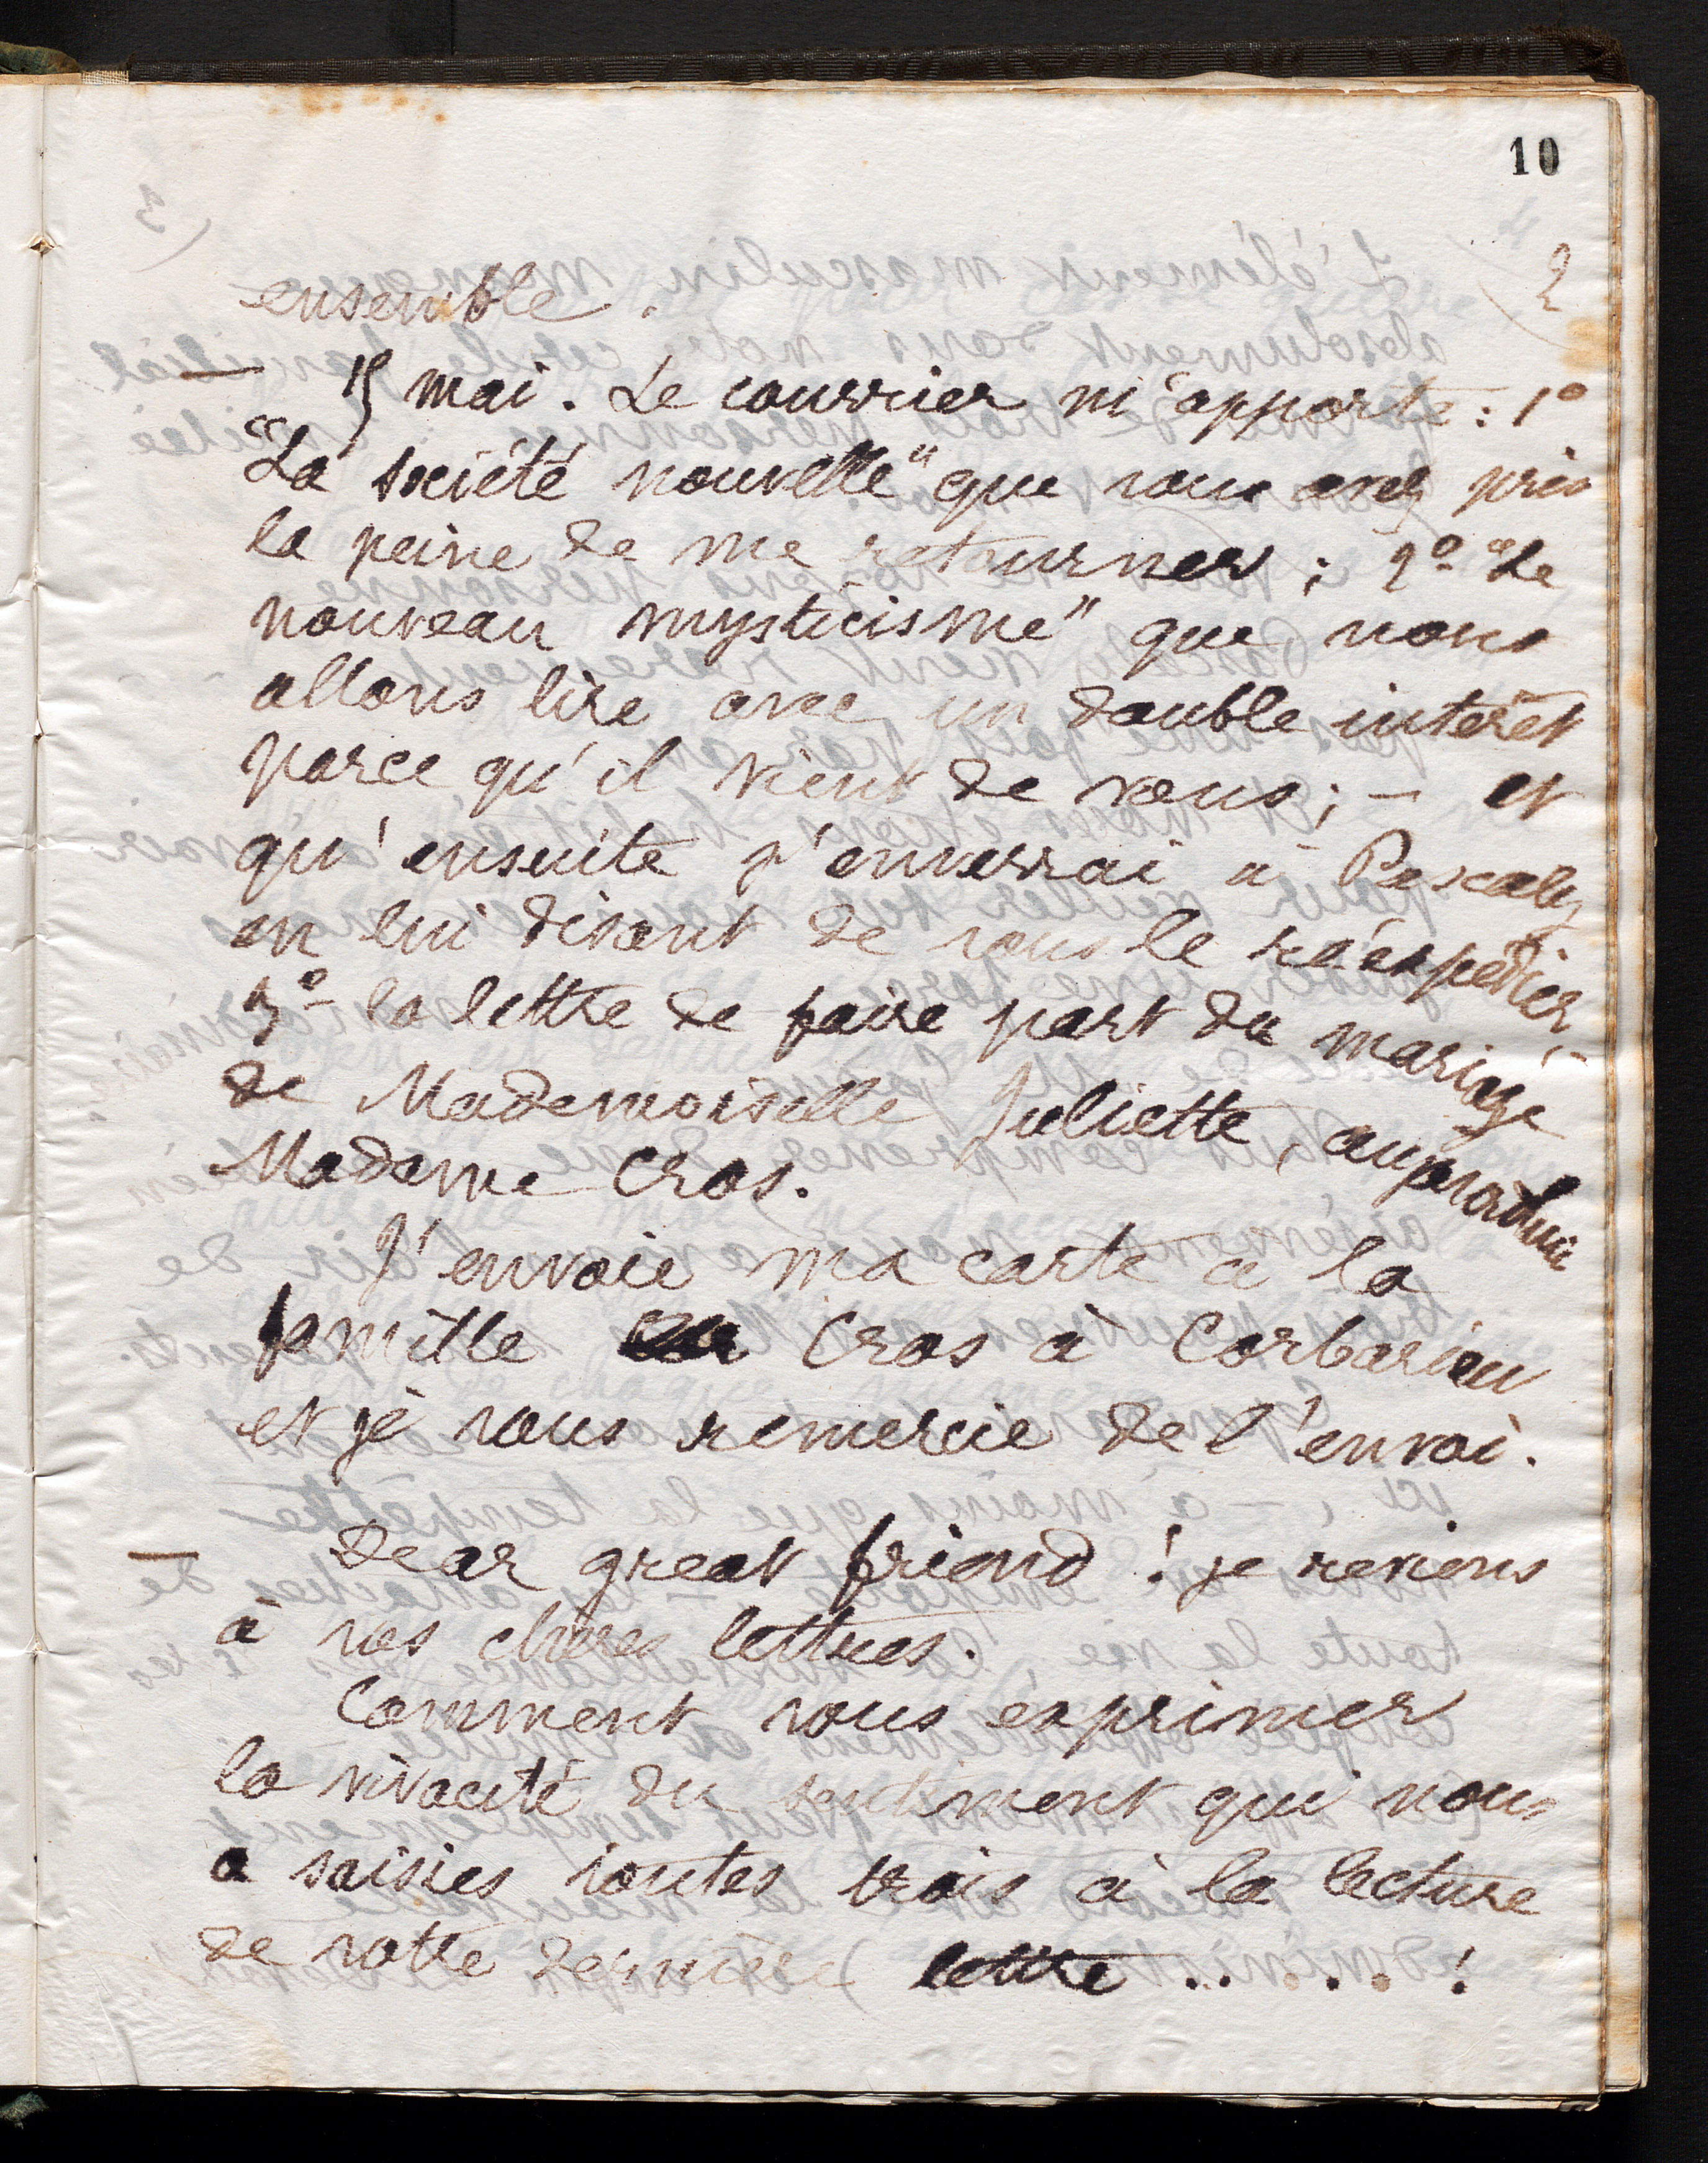 10
2
ensemble.
— 15 mai. Le courrier m'apporte: 1º
"La société nouvelle" que vous avez pris
la peine de me retourner; 2º "Le
nouveau mysticisme" que nous
allons lire avec un double intérêt
parce qu'il vient de vous; — et
qu'ensuite j'enverrai à Pascaly
en lui disant de vous le réexpédier;
3º la lettre de faire part du mariage
de Mademoiselle Juliette, aujourd'hui
Madame Cros.
J'envoie ma carte à la
famille Cros à Corbarieu
et je vous remercie de l'envoi.
— Dear great friend! je reviens
à vos chères lettres.
Comment vous exprimer
la vivacité du sentiment qui nous
a saisies toutes trois à la lecture
de votre dernière lettre .....!